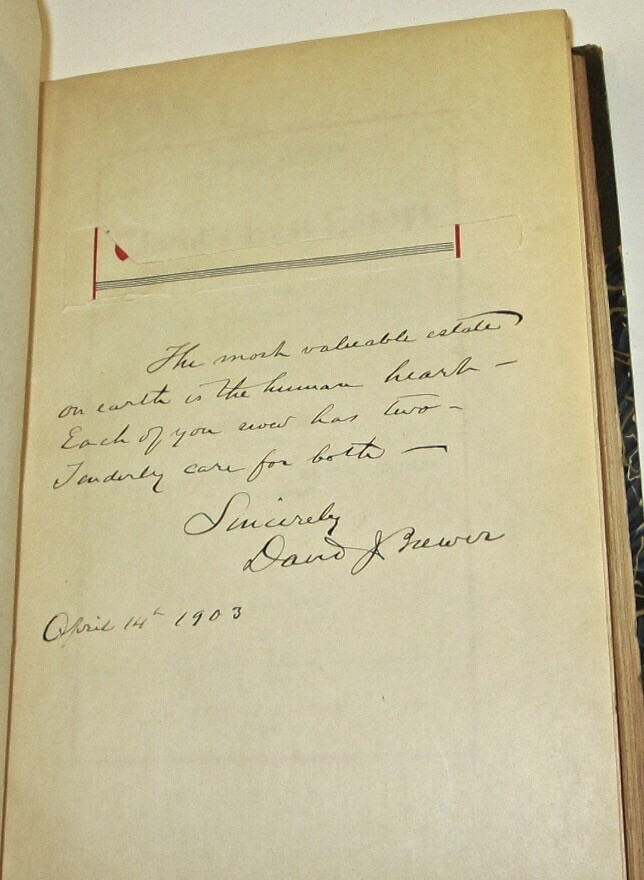 The most valuable estate
on earth is the human heart —
Each of you now has two —
Tenderly care for both —
Sincerely
David J Brewer
April 14th 1903